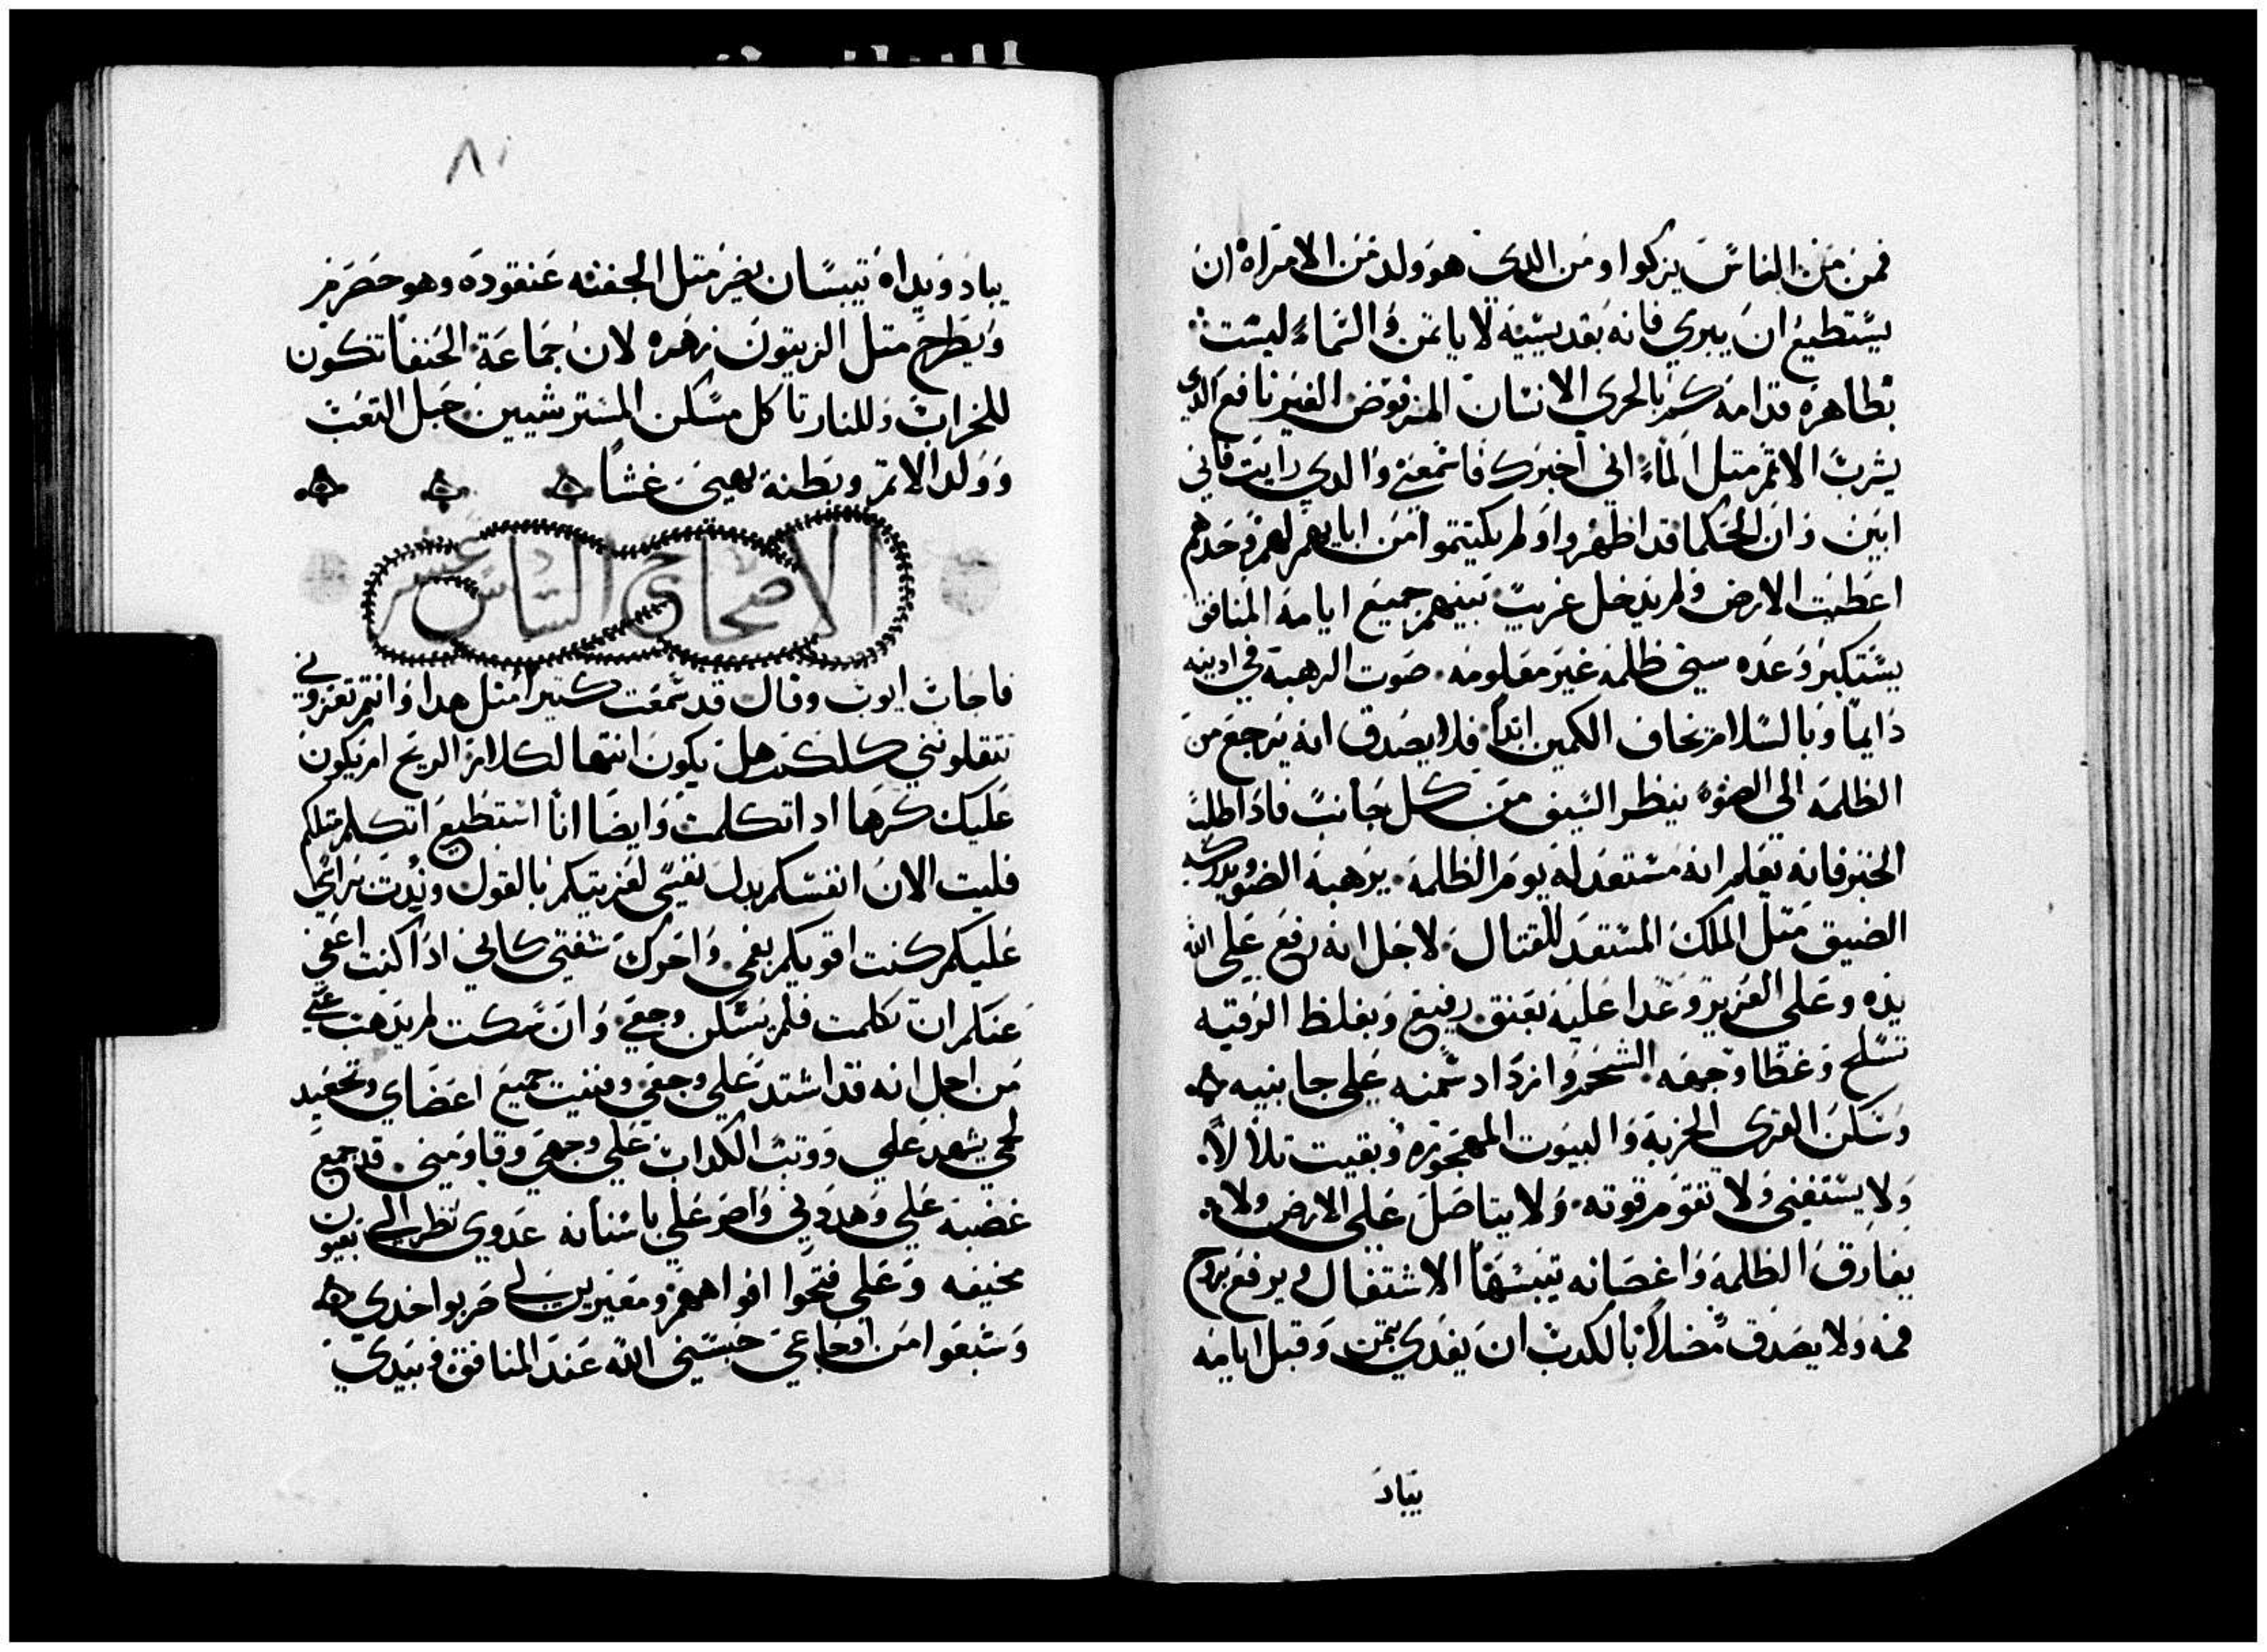 فمن من الناس يزكوا ومن الدى هو ولد من الامراة ان
يستطيع ان يبري فانه بقديسيه لا ياتمن والسماء ليست
بطاهره قدامه كم بالحرى الانسان المرفوض الغير نافع الدي
يشرب الاتم متل الماء اني اخبرك فاسمعني والدي رايت فاني
ابين وان الحكما قد اظهروا ولم يكتموا من ابايهم لهم وحدهم
اعطيت الارض ولم يدخل غريب بينهم جميع ايامه المنافق
يستكبر وعده سني ظلمه غير معلومه صوت الرهبة في ادنيه
دايما وبالسلام يخاف الكمين ابدا فلا يصدق انه يرجع من
الظلمه الى الضوء ينظر السيف من كل جانب فادا طلب
الخبز فانه يعلم انه مستعد له يوم الظلمة يرهبه الضو ويدركه
الضيق متل الملك المستعد للقتال لاجل انه رفع على الله
يده وعلى العزيز وعدا عليه بعنق رفيع وبغلظ الرقبه
تسلح وغطا وجهه الشحم وازداد سمنه على جانبيه
وسكن القرى الخربة والبيوت المهجوره وبقيت تلالا
ولا يستغني ولا تقوم قوته ولا يتاصل على الارض ولا
يفارق الظلمة واغصانه تيبسها الاشتعال ويرفع بروح
فمه ولا يصدق مضلا بالكدب ان يفدي بتمن وقبل ايامه
يباد
٨٠
يباد ويداه تيبسان يضر متل الجفنه عنقوده وهو حصرم
ويطرح متل الزيتون زهره لان جماعة الحنفا تكون
للخراب وللنار تاكل مسكن المسترشيين حبل التعب
وولد الاتم وبطنه يهيى غشا
الاصحاح السادس عشر
فاجاب ايوب وقال قد سمعت كتيرا متل هدا وانتم تعزوني
تتقلونني كلكم هل يكون انتها لكلام الريح ام يكون
عليك كرها ادا تكلمت وايضا انا استطيع اتكلم متلكم
فليت الان انفسكم بدل نفسي لعزيتكم بالقول وندت براسي
عليكم كنت اقويكم بفمي واحرك شفتي كاني ادا كنت اعفي
عنكم ان تكلمت فلم يسكن وجعي وان سكت لم يدهب عني
من اجل انه قد اشتد علي وجعي وفنيت جميع اعضاي وتجعيد
لحمي يشهد علي ووتب الكداب على وجهي وقاومني قد جمع
غضبه علي وهددني واصر علي باسنانه عدوي نظر الي بعيون
مخيفه وعلي فتحوا افواههم ومعيرين لي ضربوا خدي
وشبعوا من اوجاعي حبسني الله عند المنافق وبيدي